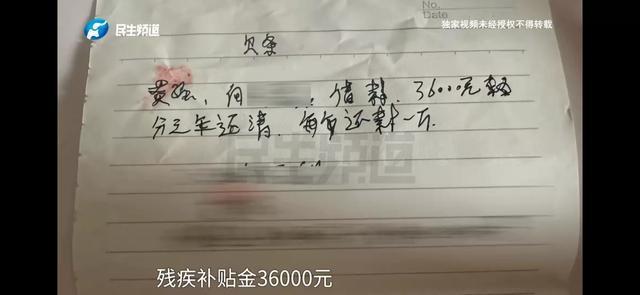 民生频道
独家视频未经授权不得转载
No.
Date
欠条
借 36000元
分三年还清 每年还款一万
民生频道
残疾补贴金36000元